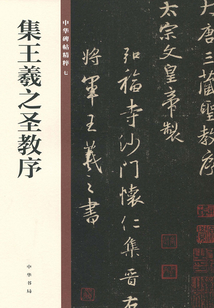 中华碑帖精粹 七
集王羲之圣教序
中华书局
大唐三藏聖教序
太宗文皇帝製
弘福寺沙門懷仁集晉右
將軍王羲之書